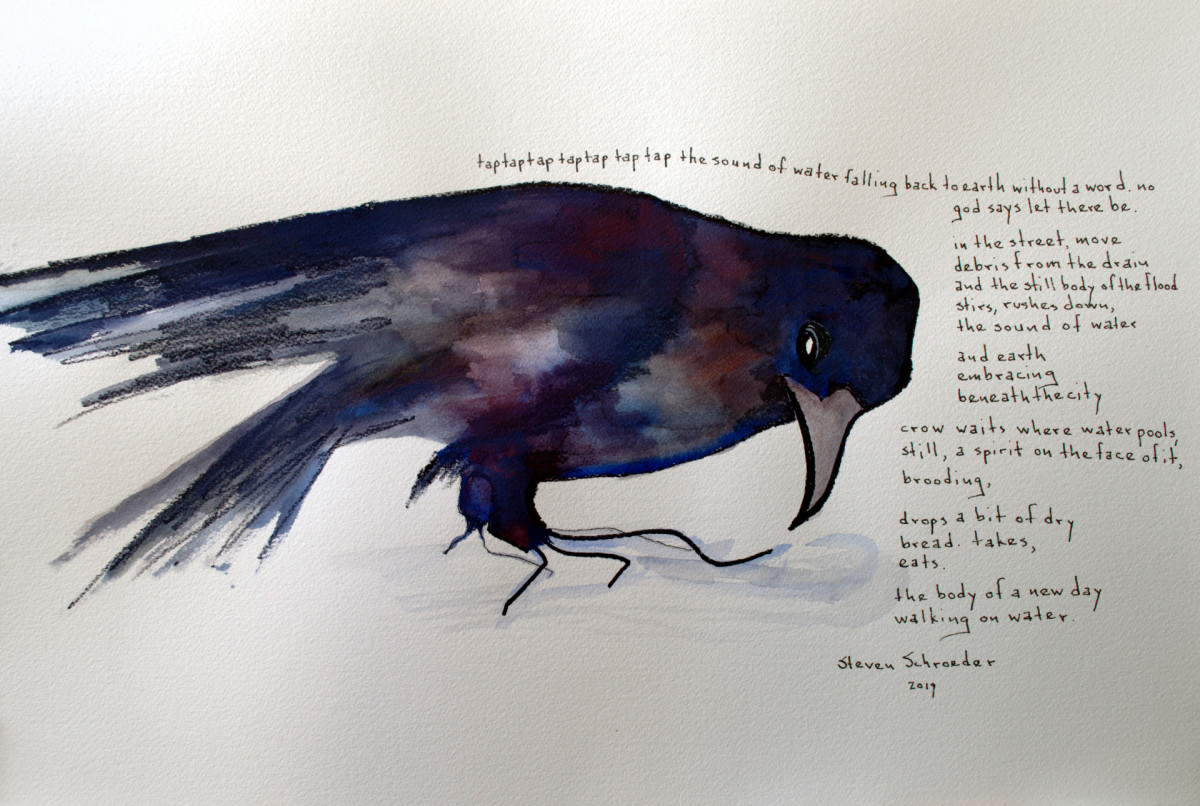 taptaptap taptap tap tap the sound of water falling back to earth without a word. no
god says let there be.
in the street, move
debris from the drain
and the still body of the flood
stirs, rushes down,
the sound of water
and earth
embracing
beneath the city
crow waits where water pools,
still, a spirit on the face of it,
brooding,
drops a bit of dry
bread. takes,
eats.
the body of a new day
walking on water.
Steven Schroeder
2019